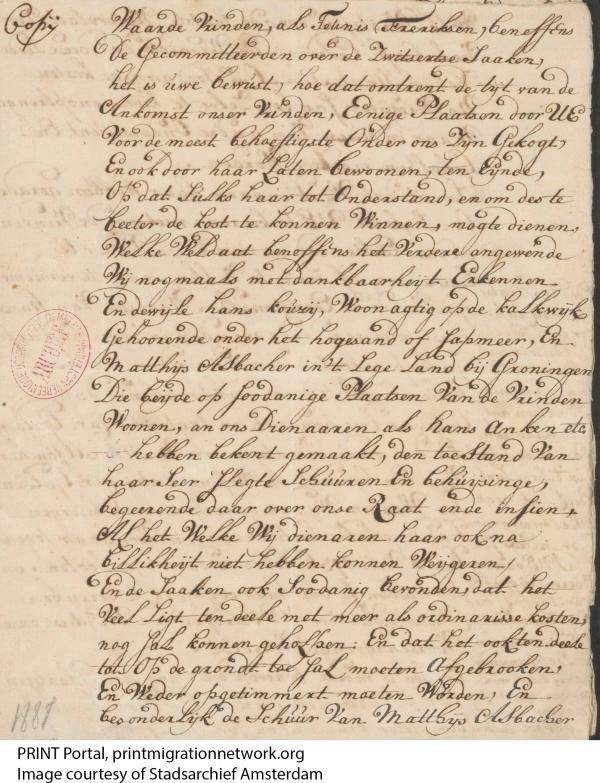 Copij
Waarde Vrinden, als Teunis Freriksen, beneffens
De Gecommitteerden over de Zwitsertse Saaken,
het is uwe bewust, hoe dat omtrent de tijt van de
Ankomst onser Vrinden, Eenige Plaatsen door UE
Voor de meest behoeftigste Onder ons Zijn Gekogt,
En ook door haar Laten bewoonen, ten Eynde,
Op dat Sulks haar tot Onderstand, en om des te
beeter de kost te konnen Winnen, mogte dienen,
Welke Weldaat beneffins het Verdere angewende
Wij nogmaals met dankbaarheijt Erkennen
En dewijle hans kouzij, Woonagtig op de kalkwijk
Gehoorende onder het hogesand of Japmeer, En
Matthijs Asbacher in't Lege Land bij Groningen
Die beijde op soodanige Plaatsen Van de Vrinden
Woonen, an ons Dienaaren als hans Anken etc
hebben bekent gemaakt, den toestand Van
haar Seer Slegte Schuuren En behuijsinge,
begeerende daar over onse Raat ende insien,
Als het Welke Wij dienaren haar ook na
billikheijt niet hebben konnen Weijgeren,
En de Saaken ook Soodanig bevonden, dat het
Veel Ligt ten deele met meer als ordinarisse kosten,
nog Sal konnen geholpen: En dat het ook ten deele
tot Op de grondt toe Sal moeten Afgebrooken,
En Weder opgetimmert moeten Worden, En
besonderlijk de Schuur Van Matthijs Asbacher
1887
PRINT Portal, printmigrationnetwork.org
Image courtesy of Stadsarchief Amsterdam